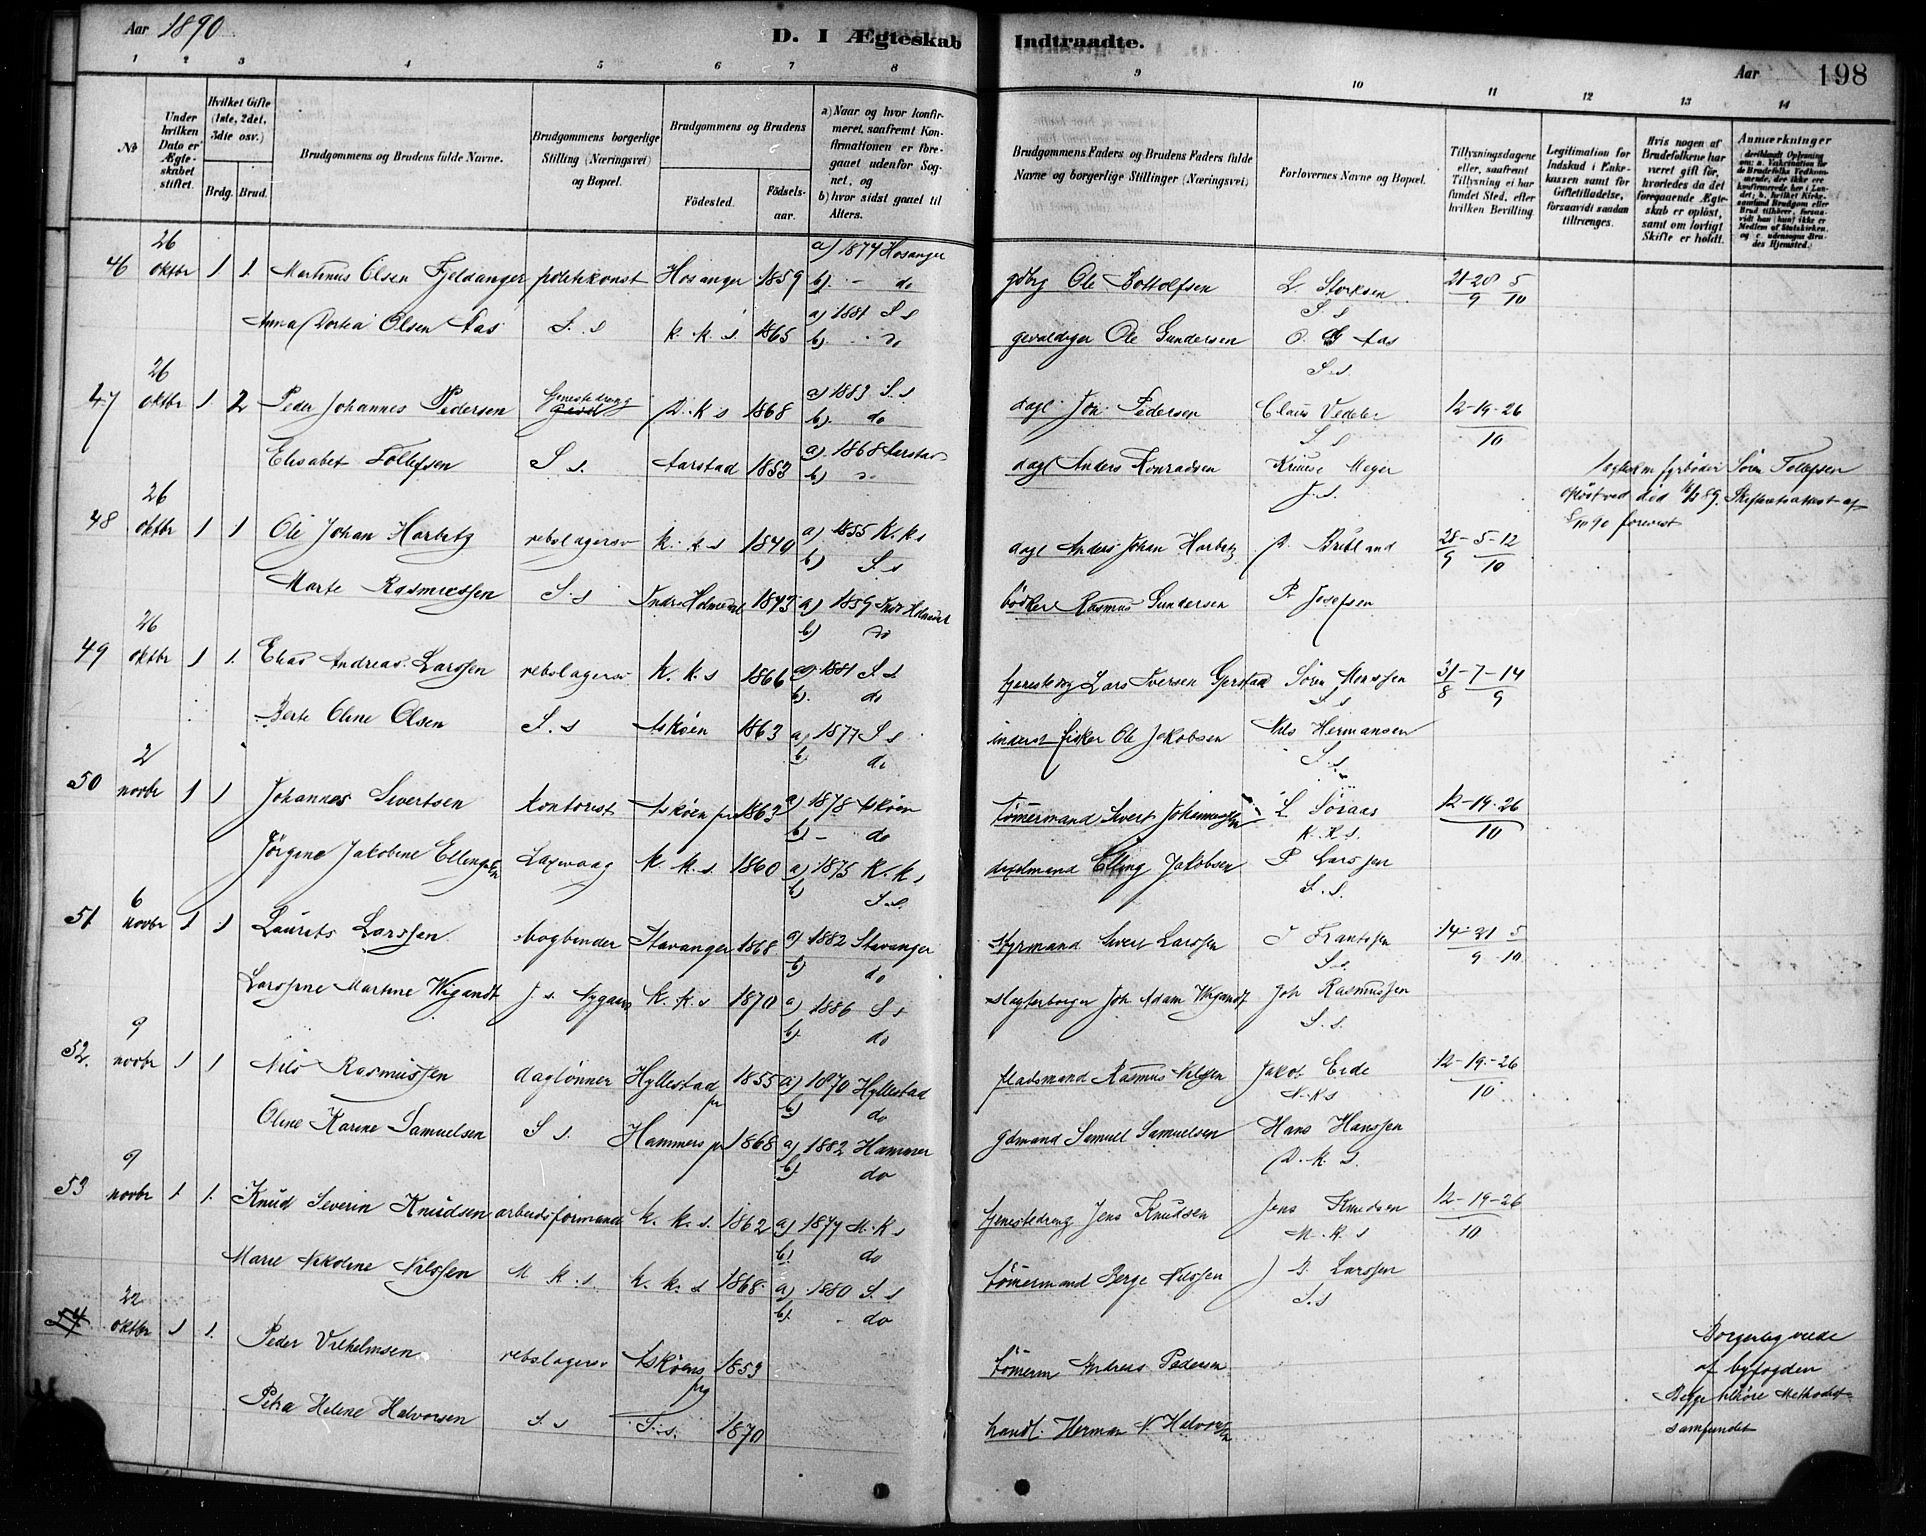 Aar 1890
D. I Ægteskab Indtraadte.
Aar 198
1 2 3 4 5 6 7 8 9 10 11 12 13 14
No
Under hvilken Dato er Ægteskabet stiftet.
Hvilket Gifte (1ste, 2det, 3die osv.)
Brdg. Brud.
Brudgommens og Brudens fulde Navne.
Brudgommens borgerlige Stilling (Næringsvei) og Bopæl.
Brudgommens og Brudens
Födested. Födsels-aar.
a) Naar og hvor konfirmeret, saafremt Konfirmationen er foregaaet udenfor Sognet, og
b) hvor sidst gaaet til Alters.
Brudgommens Faders og Brudens Faders fulde Navne og borgerlige Stillinger (Næringsvei)
Forlovernes Navne og Bopæl.
Tillysningsdagene eller, saafremt Tillysning ei har fundet Sted, efter hvilken Bevilling.
Legitimation for Indskud i Enkekassen samt for Giftetilladelse, forsaavidt saadan tiltrænges.
Hvis nogen af Brudefolkene har været gift för, hvorledes da det foregaaende Ægteskab er oplöst, samt om lovligt Skifte er holdt.
Anmærkninger
46 26 oktbr 1 1. Martinus Olsen Fjeldanger politikonst Hosanger 1859 a) 1874 Hosanger b) - do gdbrg Ole Bottolfsen L. Storksen S. s 21-28 5 / 9 10
Anna Dortea Olsen Aas S. s k. k. s. 1865 a) 1881 S s b) do gevaldiger Ole Gundersen O. G Aas S. s.
47 26 oktbr 1. 2 Peder Johannes Pedersen Tjenestedreng D. k s 1868 a) 1883 S. s b) do dagl Joh. Pedersen Claus Vedeler S s 12-19-26 / 10
Elisabet Tollefsen S s. Aarstad 1853 a) 1868 Aarstad b) do dagl Anders Konradsen Kruuse Meyer J. s. fyrböder Sören Tollefsen
48 26 oktbr 1 1 Ole Johan Harbitz rebslagersv k. k s 1840 a) 1855 K. k s b) S. s dagl Anders Johan Harbitz D. Bretland 28-5-12 / 9 10
Marte Rasmussen S. s Indr Holmedal 1843 a) 1859 Indr Holmedal b) do bödker Rasmus Gundersen P. Josefsen
49 26 oktbr 1 1. Elias Andreas Larssen rebslagersv k. k. s 1866 a) 1881 S s b) do tjenestedrg Lars Iversen Gjerstad Sören Monssen S s 31-7-14 / 8 9
Berte Oline Olsen S. s Askøen 1863 a) 1877 S s b) do inderst fisker Ole Jakobsen Nils Hermansen S s.
50 2 novbr 1 1 Johannes Sivertsen kontorist Askøen pr 1863 a) 1878 Askøen b) - do tömermand Sivert Johannessen L Söraas K. K s. 12-19-26 / 10
Jörgine Jakobine Ellingsen Laxevaag k. k. s. 1860 a) 1875 K. k s b) S. s. Elling Jakobsen P Larssen S. s.
51 6 novbr 1 1 Laurits Larssen bogbinder Stavanger 1868 a) 1882 Stavanger b) do styrmand Sivert Larssen J Frantssen S s 14-21 5 / 9 10
Larssine Martine Wigandt J. s. Nygaard k. k. s 1870 a) 1886 S s b) do slagterborger Joh Adam Wigandt Joh Rasmussen S. s.
52. 9 novbr 1 1 Nils Rasmussen daglönner Hyllestad pr 1855 a) 1870 Hyllestad b) do pladsmand Rasmus Nilssen Jakob Eide N. K s 12-19-26 / 10
Oline Karine Samuelsen S s. Hammers pr 1868 a) 1882 Hammer b) do gdmand Samuel Samuelsen Hans Hanssen D. K s.
53 9 novbr 1. 1. Knud Severin Knudsen arbeidsformand k. k. s. 1862 a) 1877 N. K s b) do tjenestedreng Jens Knudsen Jens Knudsen N. K. s 12-19-26 / 10
Marie Nikoline Nilssen N K. s. k. k. s 1868 a) 1880 S. s b) - do tömermand Berge Nilssen J B Larssen S. s
54 22 oktbr 1 1. Peder Vilhelmsen rebslagersv Askøens prg 1859 tömerm Andreas Pedersen Borgerlig viede af byfogden
Petra Helene Halvorsen S. s S. s. 1870 handl. Herman N. Halvorsen Begge tilhöre Methodist samfundet